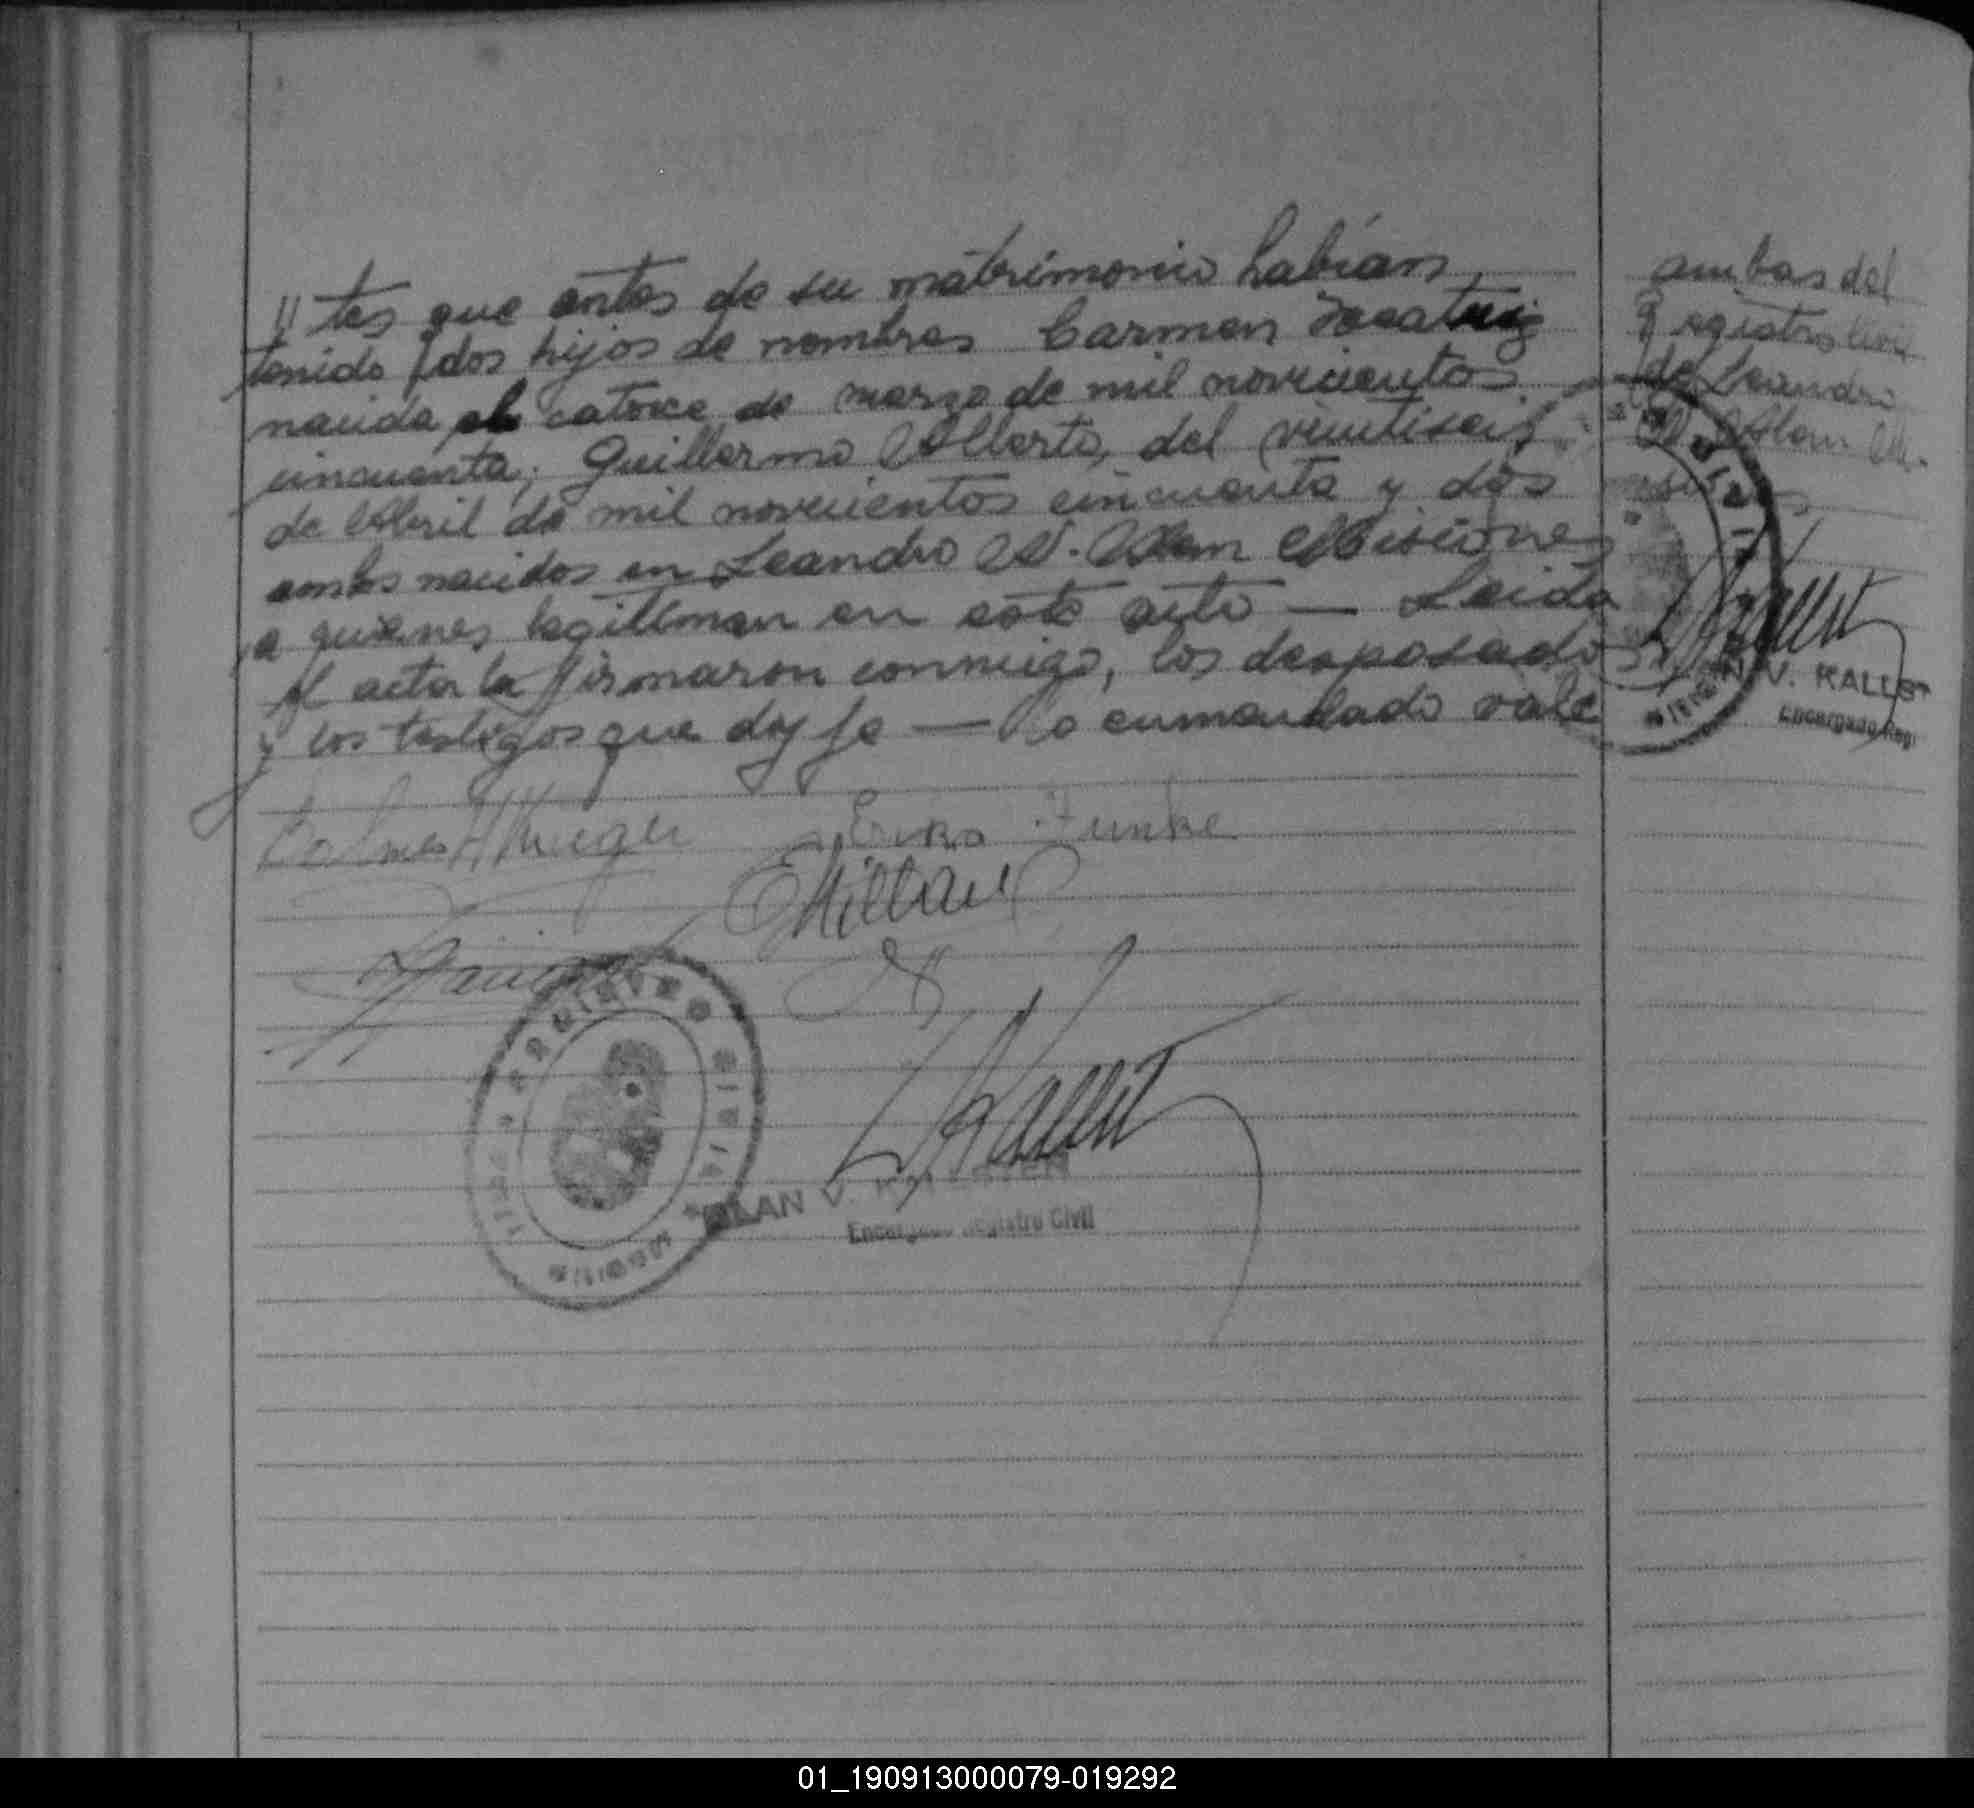 // tes que antes de su matrimonio habian
tenido dos hijos de nombres Carmen Beatriz
nacida el catorce de marzo de mil novecientos
cincuenta; Guillermo Alberto, del veintiseis
de Abril de mil novecientos cincuenta y dos
ambos nacidos en Leandro N. Alem Misiones
a quienes legitiman en este acto — Leida
el acta la firmaron conmigo, los desposados
y los testigos que doy fe — Lo enmendado vale
ambas del
Registro Civil
de Leandro
N. Alem
Krieger Erika Funke
Millan
REGISTRO
LAN V.
Encargado Registro Civil
V. KALLST
Encargado Reg
01_190913000079-019292